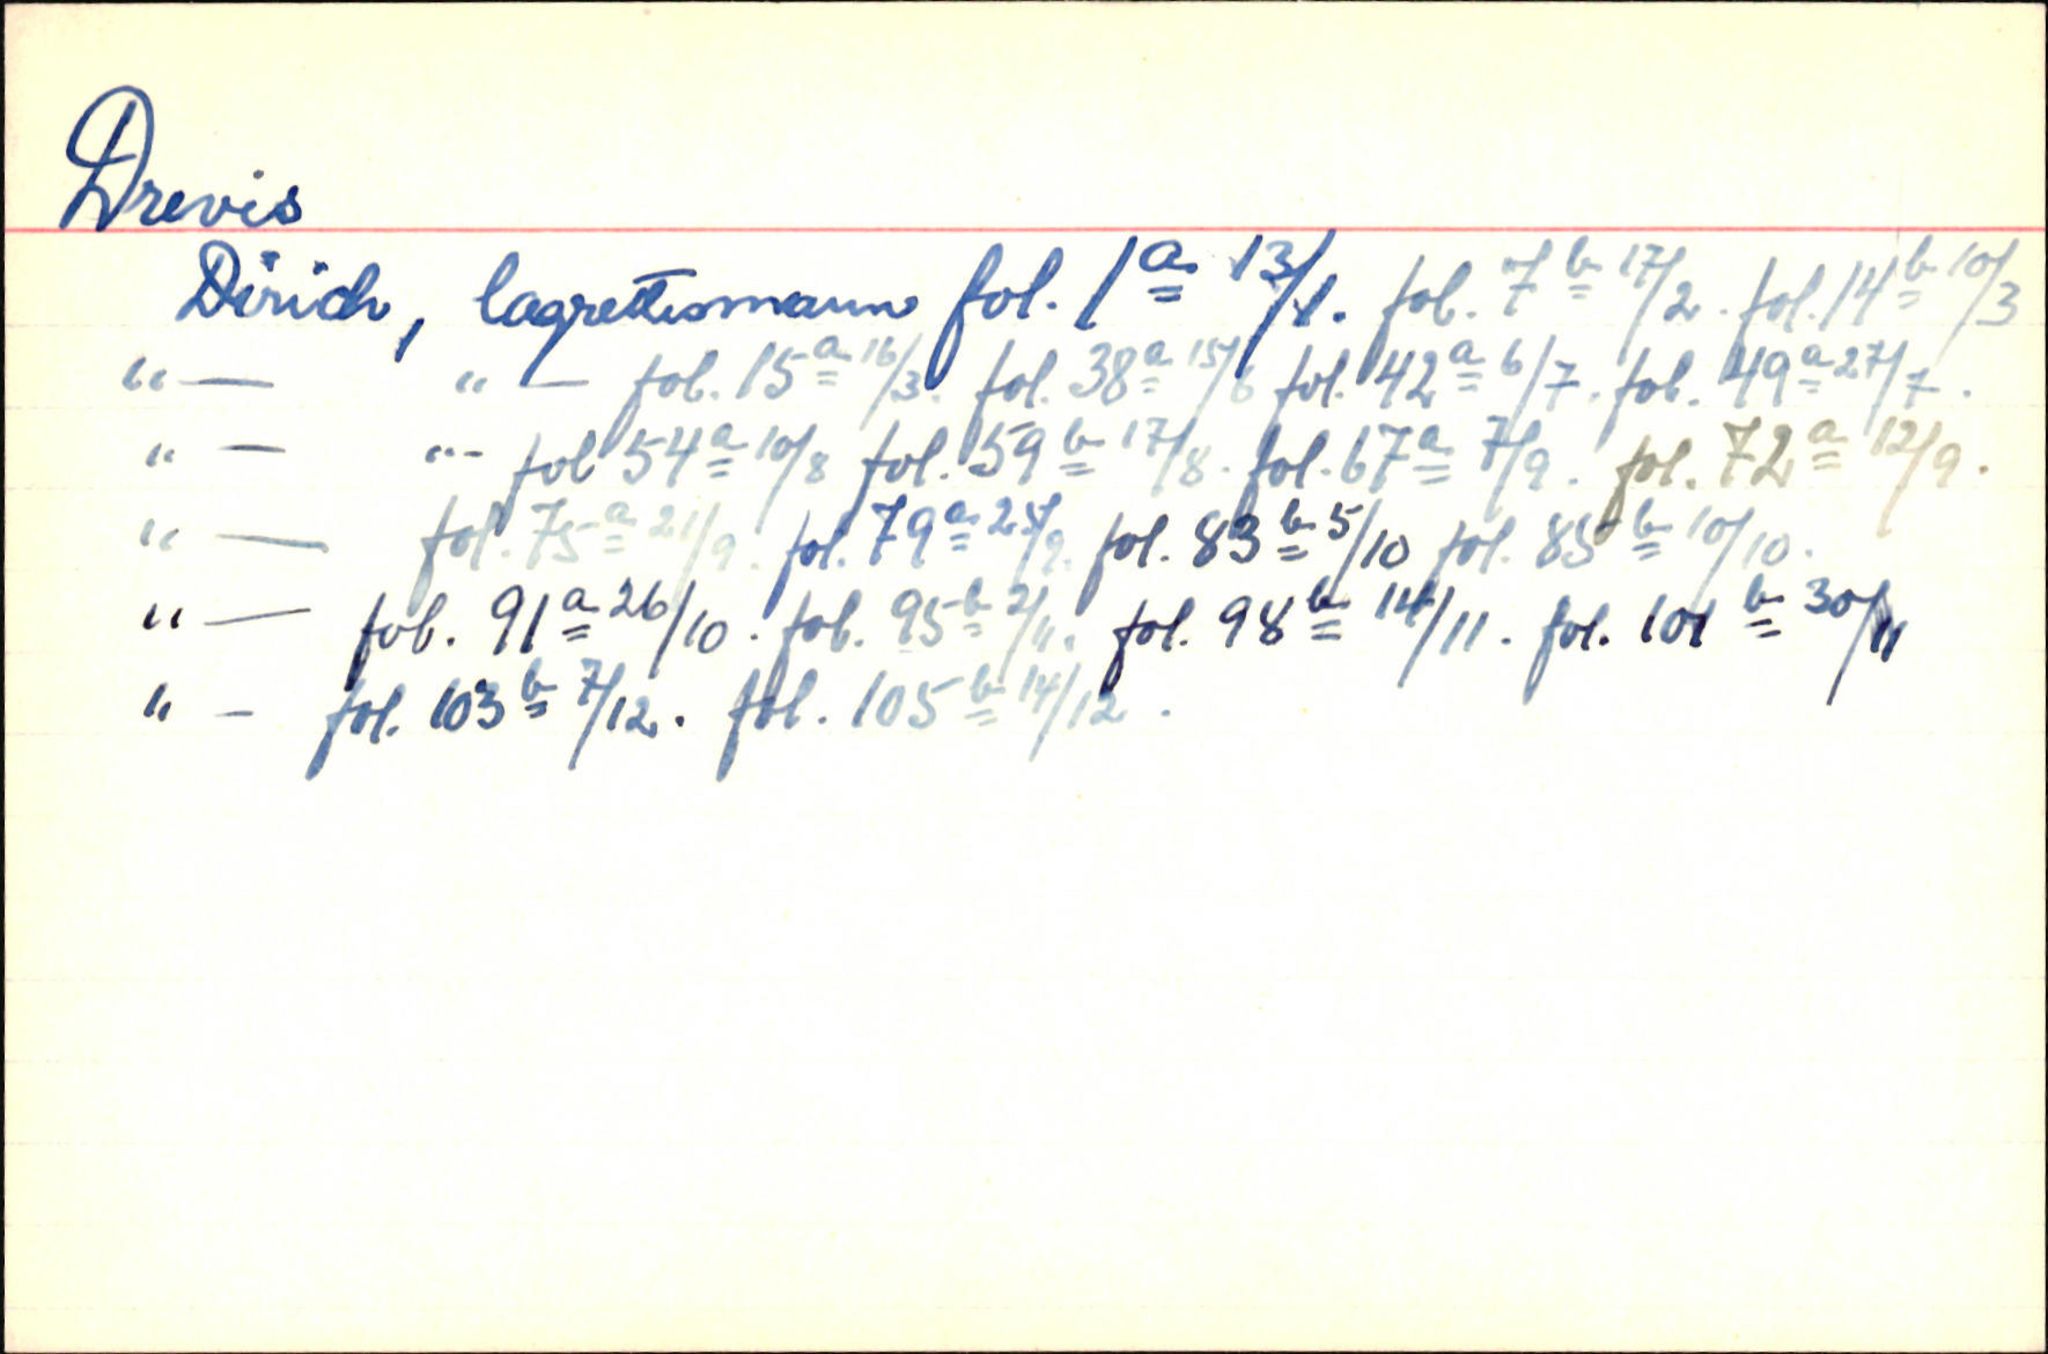 Drevis
Dirich, lagrettesmann fol. 1a 13/1. fol. 7b 17/2. fol. 14b 10/3
"— "— fol. 15a 16/3. fol. 38a 15/6 fol. 42a 6/7. fol. 49a 27/7.
"— "- fol 54a 10/8 fol. 59b 17/8. fol. 67a 7/9. fol. 72a 12/9.
"— fol. 75a 21/9. fol. 79a 25/9. fol. 83b 5/10 fol. 85b 10/10.
"— fol. 91a 26/10. fol. 95b 2/11. fol. 98b 14/11. fol. 101b 30/11
"- fol. 103b 7/12. fol. 105b 14/12.